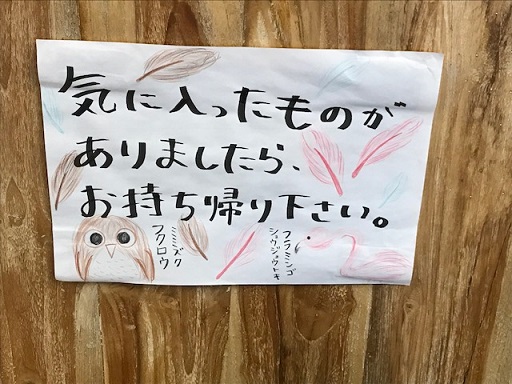 気に入ったものが
ありましたら、
お持ち帰り下さい。
ミミズク
フクロウ
フラミンゴ
ショウジョウトキ